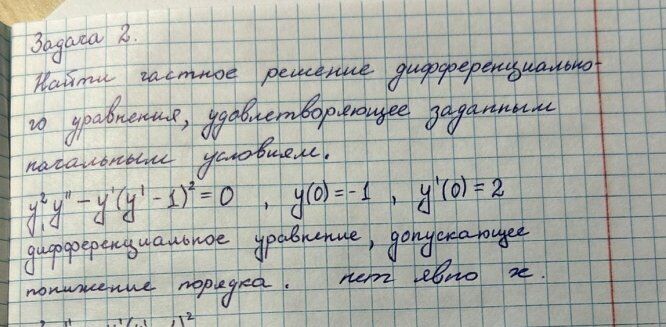 Задача 2.
Найти частное решение дифференциально-
го уравнения, удовлетворяющее заданным
начальным условиям.
y²y'' - y'(y' - 1)² = 0 , y(0) = -1 , y'(0) = 2
дифференциальное уравнение, допускающее
понижение порядка. нет явно x.